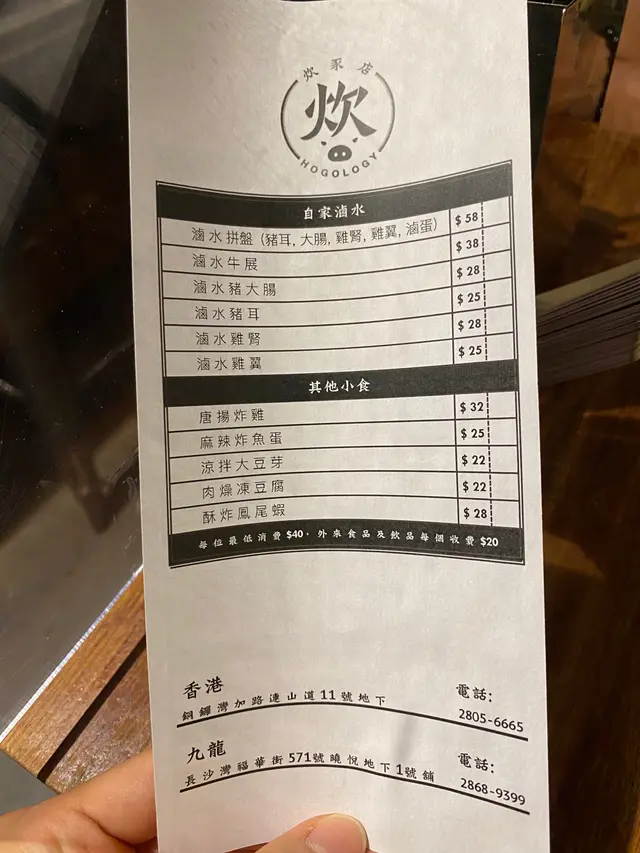 炊家店
炊
HOGOLOGY
自家滷水
滷水拼盤 (豬耳, 大腸, 雞腎, 雞翼, 滷蛋) $58
滷水牛展 $38
滷水豬大腸 $28
滷水豬耳 $25
滷水雞腎 $28
滷水雞翼 $25
其他小食
唐揚炸雞 $32
麻辣炸魚蛋 $25
涼拌大豆芽 $22
肉燥凍豆腐 $22
酥炸鳳尾蝦 $28
每位最低消費$40，外來食品及飲品每個收費$20
香港 電話:
銅鑼灣加路連山道11號地下 2805-6665
九龍 電話:
長沙灣福華街571號曉悅地下1號舖 2868-9399